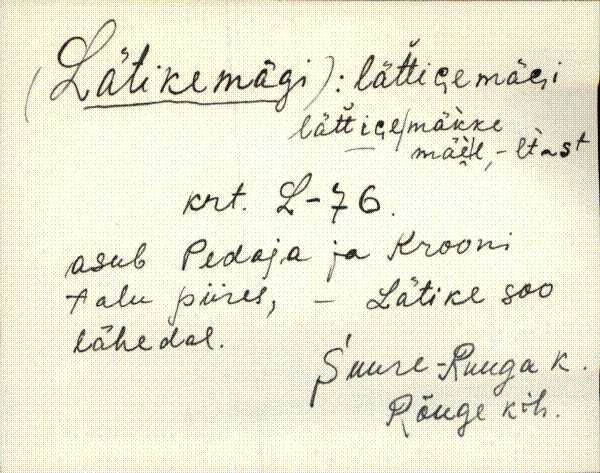 (Lätikemägi): lättigemägi
lättige/mäkke
krt. L-76.
asub Pedaja ja Krooni
talu piires, – Lätike soo
lähedal.
Suure-Ruuga k.
Rõuge kih.